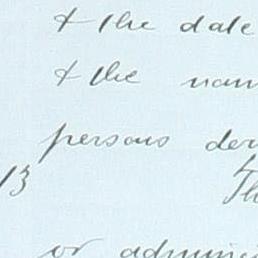 & the date
& the nam
persons der
13
Th
or admini